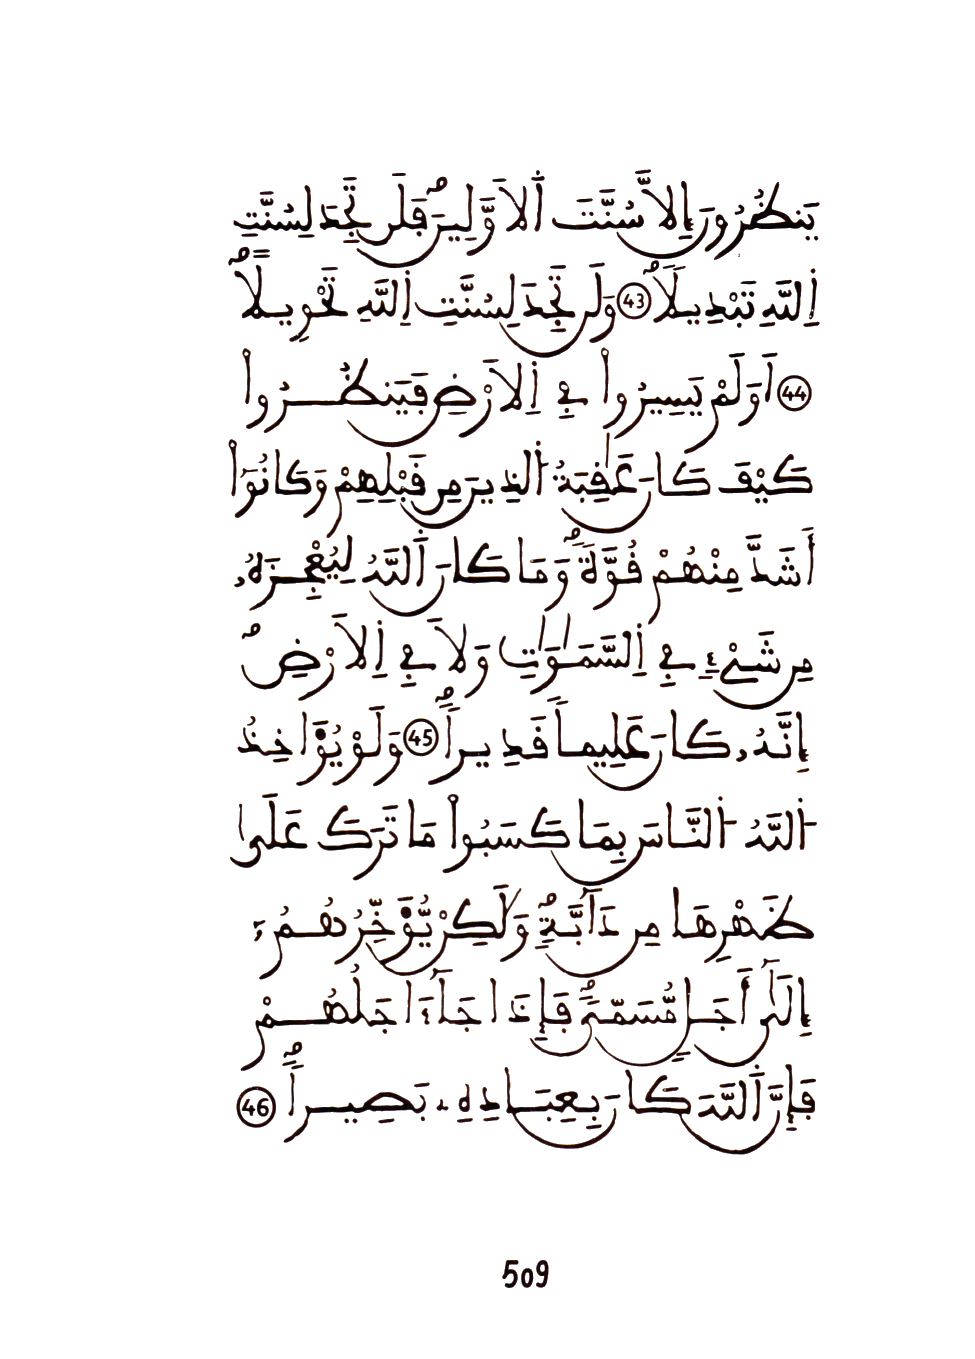 يَنظُرُونَ إِلاَّ سُنَّتَ اَ۬لَاوَّلِينَۖ فَلَن تَجِدَ لِسُنَّتِ
اِ۬للَّهِ تَبْدِيلاٗۖ 43 وَلَن تَجِدَ لِسُنَّتِ اِ۬للَّهِ تَحْوِيلاًۖ
44 اَوَلَمْ يَسِيرُواْ فِے اِ۬لَارْضِ فَيَنظُرُواْ
كَيْفَ كَانَ عَٰقِبَةُ اُ۬لذِينَ مِن قَبْلِهِمْ وَكَانُوٓاْ
أَشَدَّ مِنْهُمْ قُوَّةٗۖ وَمَا كَانَ اَ۬للَّهُ لِيُعْجِزَهُۥ
مِن شَےْءٖ فِے اِ۬لسَّمَٰوَٰتِ وَلَا فِے اِ۬لَارْضِۖ
إِنَّهُۥ كَانَ عَلِيماٗ قَدِيراٗۖ 45 وَلَوْ يُؤَاخِذُ
اُ۬للَّهُ اُ۬لنَّاسَ بِمَا كَسَبُواْ مَا تَرَكَ عَلَىٰ
ظَهْرِهَا مِن دَآبَّةٖۖ وَلَٰكِنْ يُّؤَخِّرُهُمُۥٓ
إِلَىٰٓ أَجَلٖ مُّسَمّيٗۖ فَإِذَا جَآءَ اجَلُهُمْ
فَإِنَّ اَ۬للَّهَ كَانَ بِعِبَادِهِۦ بَصِيراٗۖ 46
509